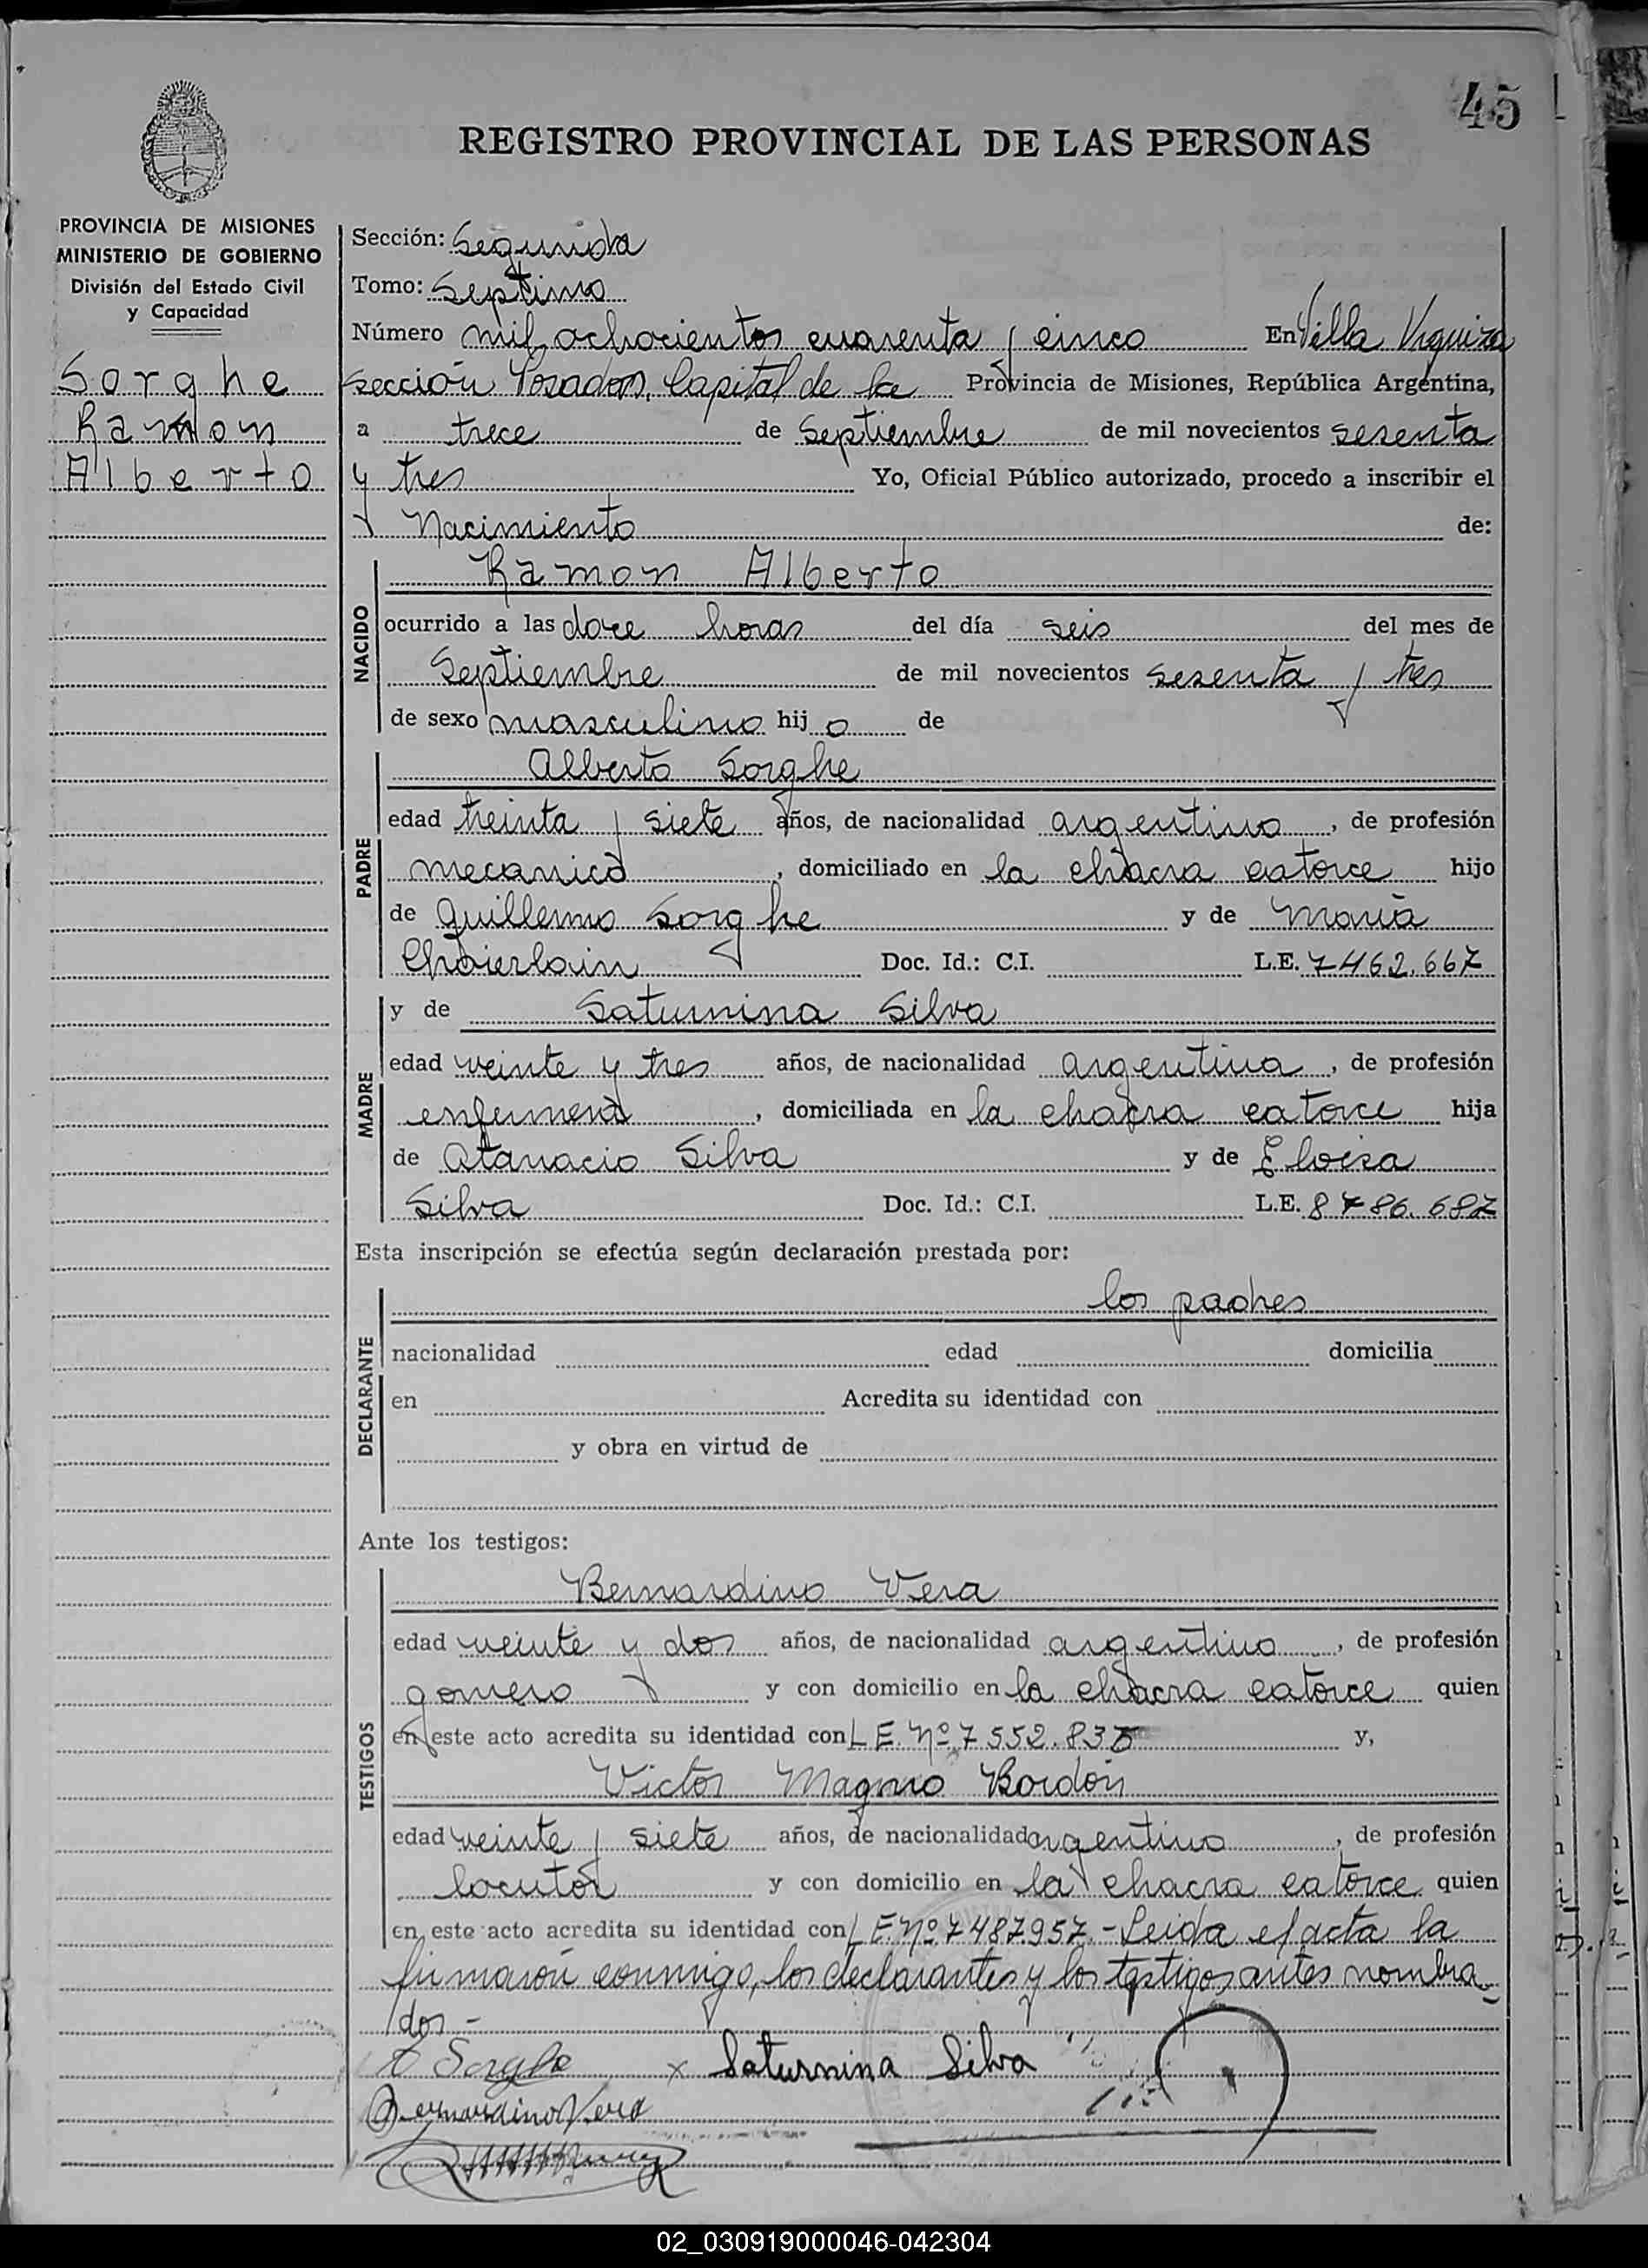 45
REGISTRO PROVINCIAL DE LAS PERSONAS
PROVINCIA DE MISIONES
MINISTERIO DE GOBIERNO
División del Estado Civil
y Capacidad
Sorghe
Ramon
Alberto
Sección: Segunda
Tomo: Septimo
Número mil ochocientos cuarenta y cinco En Villa Urquiza
sección Posadas, Capital de la Provincia de Misiones, República Argentina,
a trece de Septiembre de mil novecientos sesenta
y tres Yo, Oficial Público autorizado, procedo a inscribir el
Nacimiento de:
NACIDO
Ramon Alberto
ocurrido a las doce horas del día seis del mes de
Septiembre de mil novecientos sesenta y tres
de sexo masculino hijo de
PADRE
Alberto Sorghe
edad treinta y siete años, de nacionalidad argentino, de profesión
mecanico, domiciliado en la chacra catorce hijo
de Guillermo Sorghe y de Maria
Doc. Id.: C.I. L.E. 7462.667
MADRE
y de Saturnina Silva
edad veinte y tres años, de nacionalidad argentina, de profesión
enfermera, domiciliada en la chacra catorce hija
de Atanacio Silva y de Eloisa
Silva Doc. Id.: C.I. L.E. 8786.687
Esta inscripción se efectúa según declaración prestada por:
DECLARANTE
los padres
nacionalidad edad domicilia
en Acredita su identidad con
y obra en virtud de
Ante los testigos:
TESTIGOS
Bernardino Vera
edad veinte y dos años, de nacionalidad argentino, de profesión
gomero y con domicilio en la chacra catorce quien
en este acto acredita su identidad con L E. Nº 7552.835 y,
Victor Magno Bordón
edad veinte y siete años, de nacionalidad argentino, de profesión
locutor y con domicilio en la chacra catorce quien
en este acto acredita su identidad con L E. Nº 7487957.- Leida el acta la
firmaron conmigo, los declarantes y los testigos antes nombra-
dos.-
Sorghe x Saturnina Silva
Bernardino Vera
02_030919000046-042304